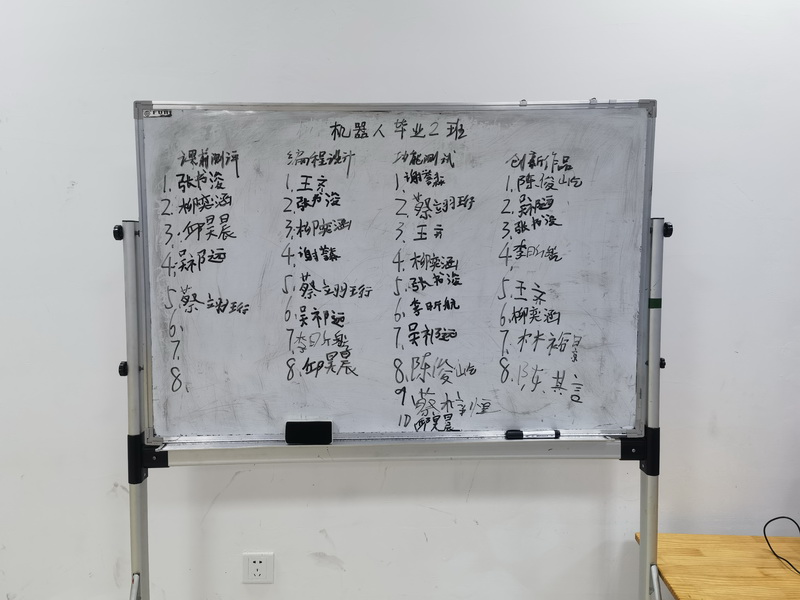 机器人毕业2班
课前测评
1.张书浚
2.柳奕涵
3.邱昊晨
4.吴祁远
5.蔡翊珩
6.
7.
8.
编程设计
1.王齐
2.张书浚
3.柳奕涵
4.谢
5.蔡翊珩
6.吴祁远
7.李昕航
8.邱昊晨
功能测试
1.谢
2.蔡翊珩
3.王齐
4.柳奕涵
5.张书浚
6.李昕航
7.吴祁远
8.陈俊屹
9 蔡梓恒
10 邱昊晨
创新作品
1.陈俊屹
2.吴祁远
3.张书浚
4.李昕航
5.王齐
6.柳奕涵
7.林裕
8.陈其言